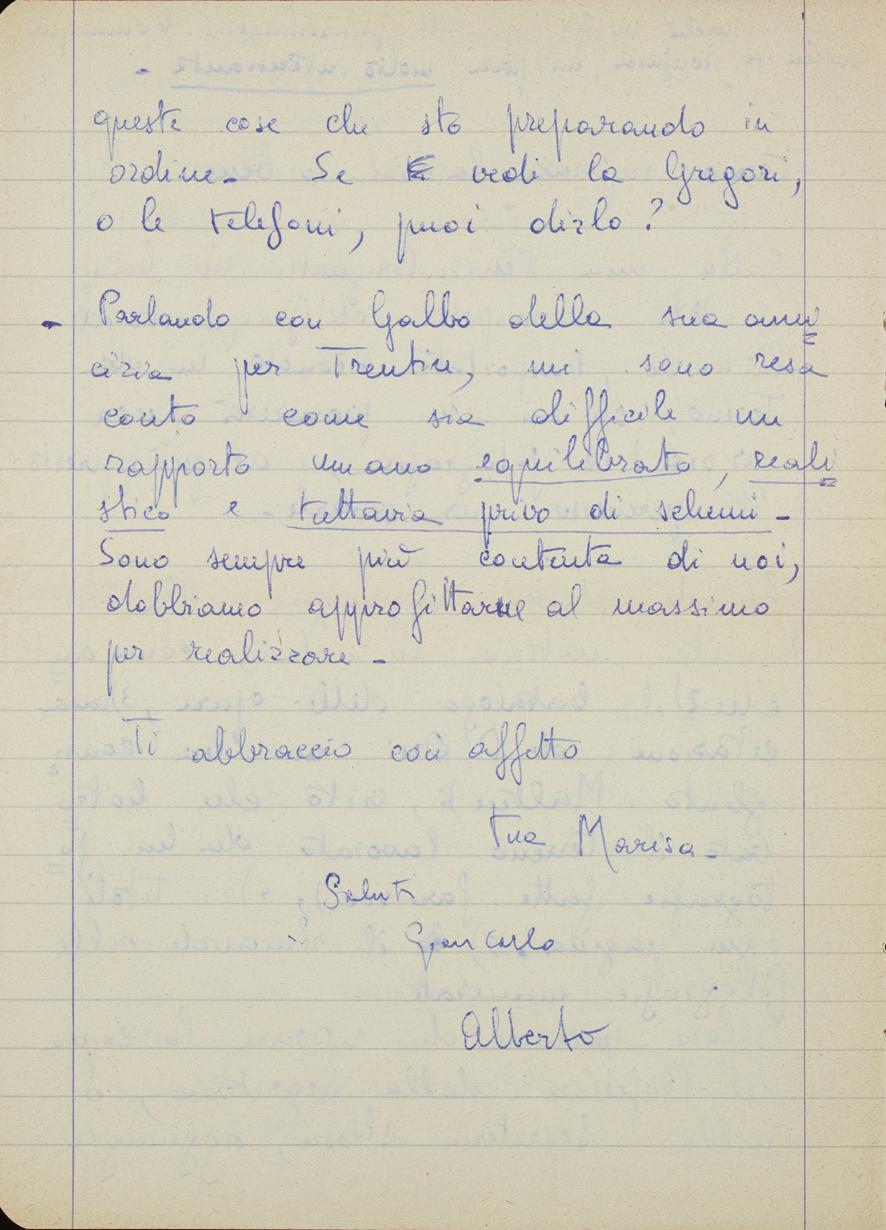 queste cose che sto preparando in
ordine. Se vedi la Gregori,
o le telefoni, puoi dirlo?
- Parlando con Galbo della sua ami=
cizia per Trentin, mi sono resa
conto come sia difficile un
rapporto umano equilibrato, reali=
stico e tuttavia privo di schemi -
Sono sempre più contenta di noi,
dobbiamo approfittarne al massimo
per realizzare -
Ti abbraccio con affetto
tua Marisa.
Saluti
Giancarlo
Alberto